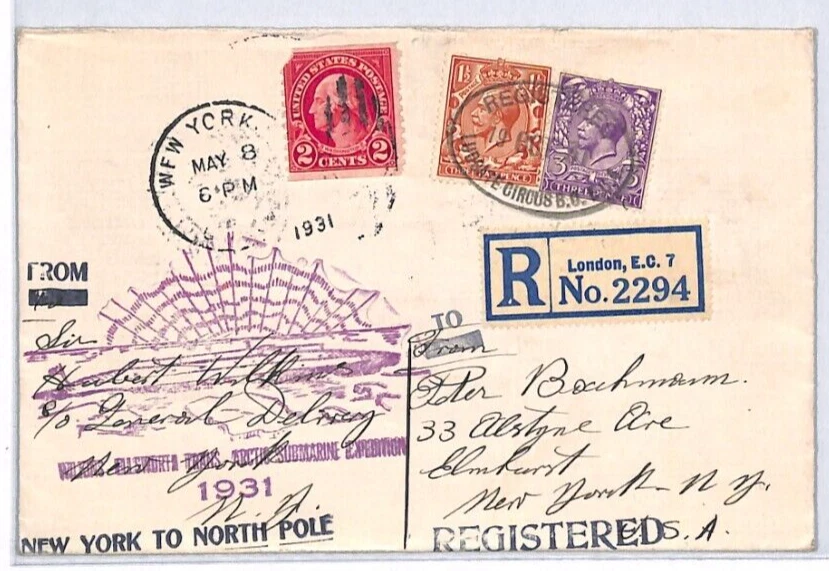 UNITED STATES POSTAGE
2 CENTS 2
1½ 1½
3 3
NEW YORK
MAY 8
6 PM
1931
REGISTERED
CIRCUS B.O.
R
London, E.C. 7
No. 2294
FROM
Sir
Hubert Wilkins
c/o General Delivery
New York
N.Y.
WILKINS-ELLSWORTH TRANS-ARCTIC SUBMARINE EXPEDITION
1931
NEW YORK TO NORTH POLE
TO
From
Peter Bachmann.
33 Alstyne Ave
Elmhurst
New York N.Y.
U.S.A.
REGISTERED